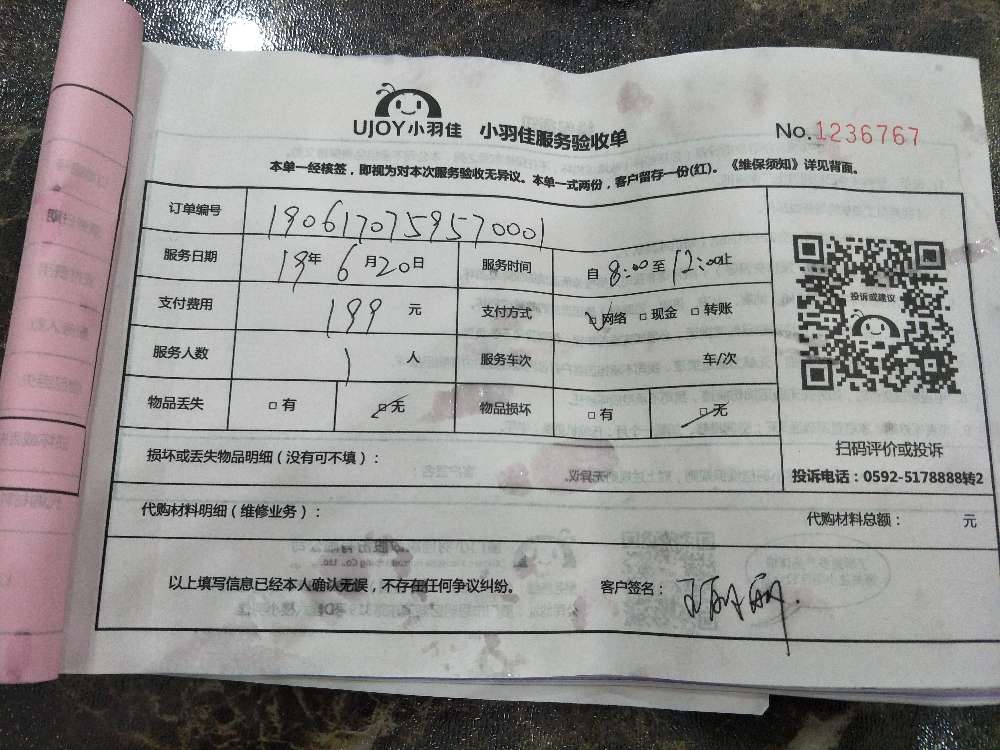 UJOY小羽佳 小羽佳服务验收单
No.1236767
本单一经核签，即视为对本次服务验收无异议。本单一式两份，客户留存一份(红)。《维保须知》详见背面。
订单编号 1906170759570001
服务日期 19年6月20日 服务时间 自8:00至12:00止
支付费用 199元 支付方式 网络 □现金 □转账
服务人数 1人 服务车次 车/次
物品丢失 □有 □无 物品损坏 □有 □无
投诉或建议
扫码评价或投诉
投诉电话：0592-5178888转2
损坏或丢失物品明细（没有可不填）：
代购材料明细（维修业务）： 代购材料总额： 元
以上填写信息已经本人确认无误，不存在任何争议纠纷。 客户签名：